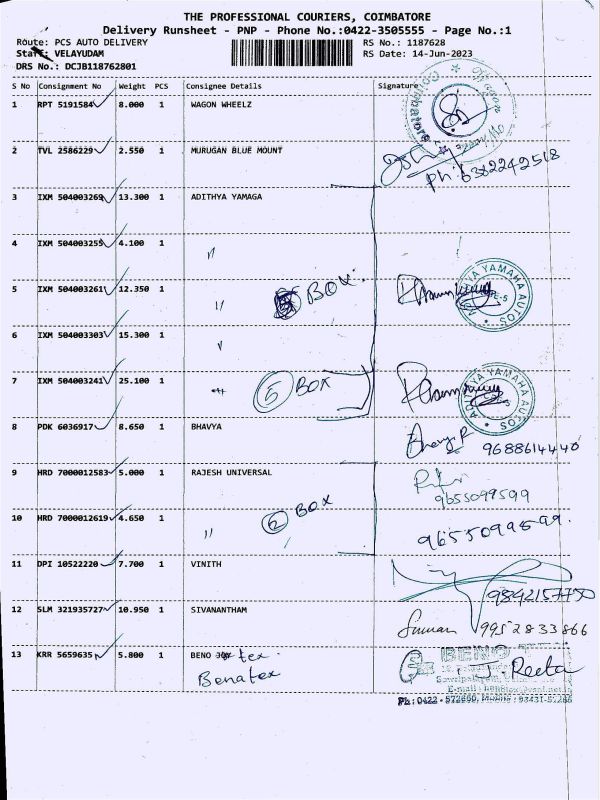 THE PROFESSIONAL COURIERS, COIMBATORE
Delivery Runsheet - PNP - Phone No.:0422-3505555 - Page No.:1
Route: PCS AUTO DELIVERY RS No.: 1187628
Staff: VELAYUDAM RS Date: 14-Jun-2023
DRS No.: DCJB118762801
S No Consignment No Weight PCS Consignee Details Signature
1 RPT 5191584 8.000 1 WAGON WHEELZ
2 TVL 2586229 2.550 1 MURUGAN BLUE MOUNT
Ph: 6382242518
3 IXM 504003269 13.300 1 ADITHYA YAMAGA
4 IXM 504003255 4.100 1 "
5 IXM 504003261 12.350 1 " 5 BOX.
ADITYA YAMAHA AUTOS
6 IXM 504003303 15.300 1 "
7 IXM 504003241 25.100 1 " 5 BOX
ADITYA YAMAHA AUTOS
8 PDK 6036917 8.650 1 BHAVYA
9688614440
9 HRD 7000012583 5.000 1 RAJESH UNIVERSAL
9655099599
10 HRD 7000012619 4.650 1 " 2 BOX
9655099599.
11 DPI 10522220 7.700 1 VINITH
9842157750
12 SLM 321935727 10.950 1 SIVANANTHAM
9952833866
13 KRR 5659635 5.800 1 BENO tex.
Benatex
BENO T
J. Reeta